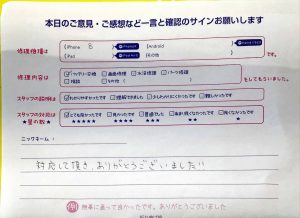 本日のご意見・ご感想など一言と確認のサインお願いします
修理機種は
iPhone 8
Android
iPad
その他
修理内容は
バッテリー交換 画面修理 水没修理 パーツ修理
その他
をしてもらいました。
スタッフの説明は
わかりやすかったです 理解できました 少しわかりにくかったです 難しかったです
スタッフの対応は
★星の数★
とても良かったです 良かったです 普通でした
★★★★★ ★★★★ ★★★ ★★ ★
ニックネーム：
対応して頂き、ありがとうございました!!
無事に直って良かったです。ありがとうございました